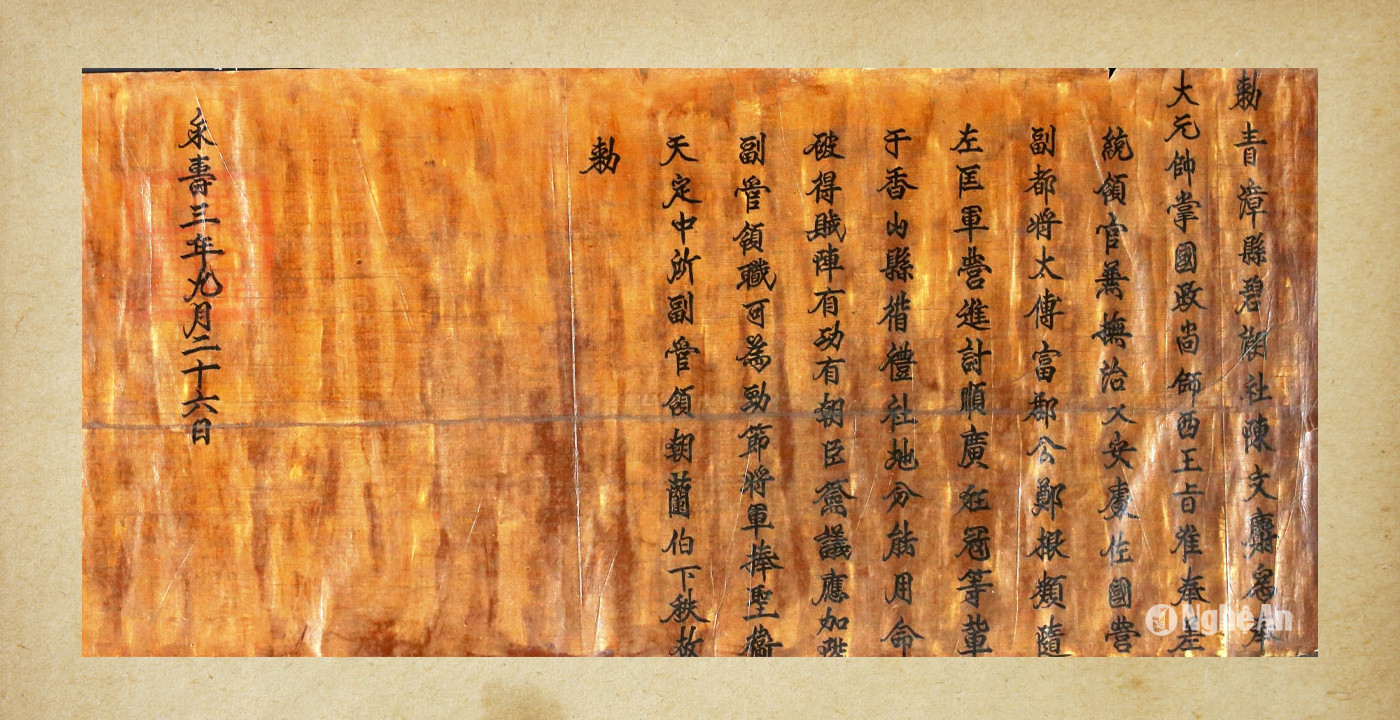 勅青漳縣碧潮社陳文
大元帥掌國政尚師西王旨准奉左
統領官兼撫治乂安處佐國營
副都将太傅富郡公鄭根類隨
左匡軍營進討順廣等輩
于香山縣楷禮社地分能用命
破得賊陣有功有朝臣僉議應加陞
副管領職可為勁節将軍捧聖衛
天定中所副管領朝蘭伯下秩故
勅
永壽三年九月二十六日
Nghệ An